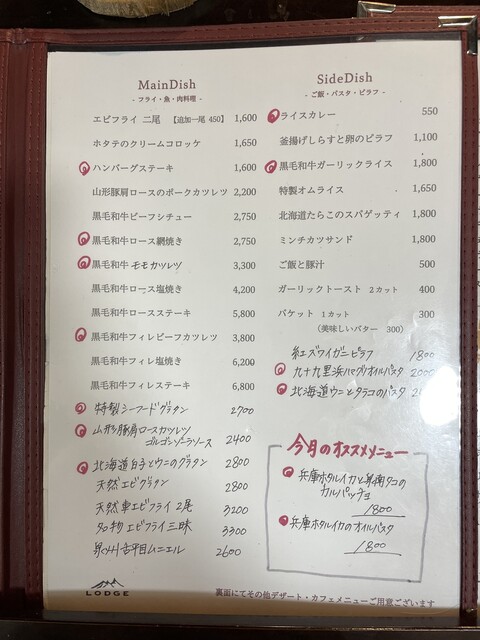 MainDish
- フライ・魚・肉料理 -
エビフライ 二尾 【追加一尾 450】 1,600
ホタテのクリームコロッケ 1,650
ハンバーグステーキ 1,600
山形豚肩ロースのポークカツレツ 2,200
黒毛和牛ビーフシチュー 2,750
黒毛和牛ロース網焼き 2,750
黒毛和牛モモカツレツ 3,300
黒毛和牛ロース塩焼き 4,200
黒毛和牛ロースステーキ 5,800
黒毛和牛フィレビーフカツレツ 3,800
黒毛和牛フィレ塩焼き 6,200
黒毛和牛フィレステーキ 6,800
特製シーフードグラタン 2700
山形豚肩ロースカツレツ
ゴルゴンゾーラソース 2400
北海道白子とウニのグラタン 2800
天然エビグラタン 2800
天然車エビフライ2尾 3200
エビフライ三昧 3300
泉州舌平目ムニエル 2600
LODGE
SideDish
- ご飯・パスタ・ピラフ -
ライスカレー 550
釜揚げしらすと卵のピラフ 1,100
黒毛和牛ガーリックライス 1,800
特製オムライス 1,650
北海道たらこのスパゲッティ 1,800
ミンチカツサンド 1,800
ご飯と豚汁 500
ガーリックトースト 2カット 400
バケット 1カット 300
(美味しいバター 300)
紅ズワイガニピラフ 1800
九十九里浜ハマグリオイルパスタ 2000
北海道ウニとタラコのパスタ
今月のオススメメニュー
兵庫ホタルイカと泉南タコの
カルパッチョ
1800
兵庫ホタルイカのオイルパスタ
1800
裏面にてその他デザート・カフェメニューご用意ございます